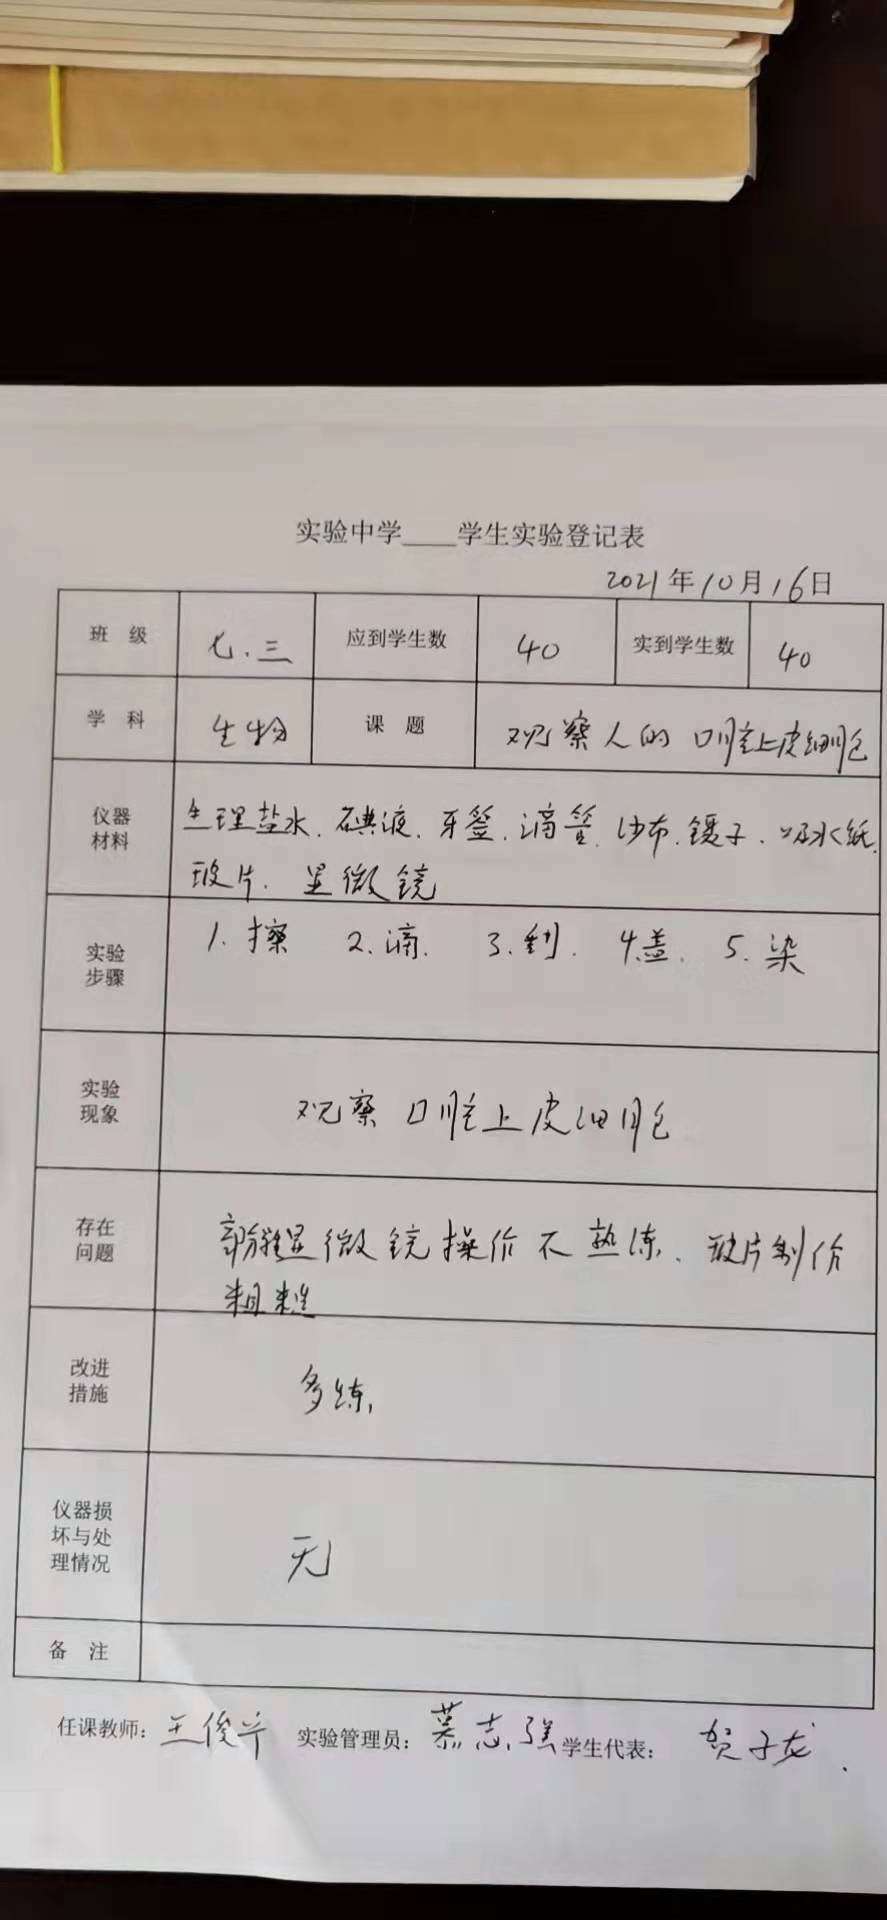 实验中学____学生实验登记表
2021年10月16日
班 级 七.三 应到学生数 40 实到学生数 40
学 科 生物 课 题 观察人的口腔上皮细胞
仪器材料 生理盐水.碘液.牙签.滴管.沙布.镊子.吸水纸.
玻片.显微镜
实验步骤 1.擦 2.滴. 3.刮. 4.盖. 5.染
实验现象 观察口腔上皮细胞
存在问题 显微镜操作不熟练、玻片制作
粗糙
改进措施 多练,
仪器损坏与处理情况 无
备 注
任课教师: 王俊 实验管理员: 慕志强 学生代表: 贺子龙.